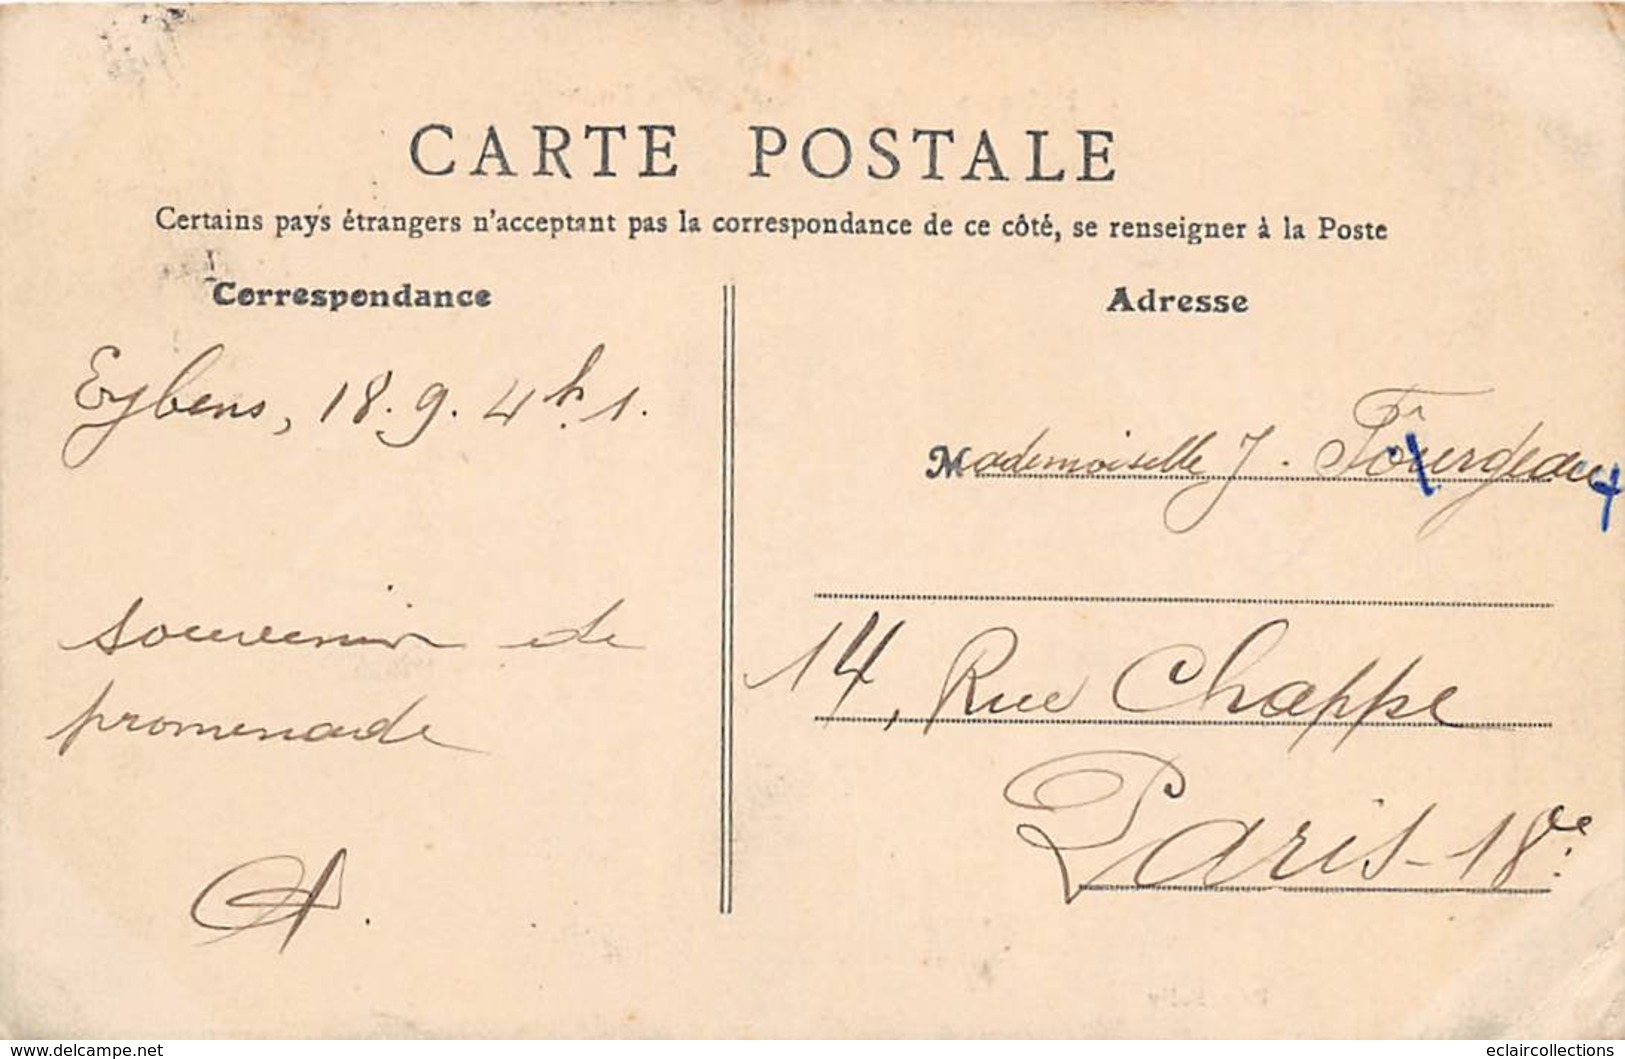 CARTE POSTALE
Certains pays étrangers n'acceptant pas la correspondance de ce côté, se renseigner à la Poste
Correspondance
Eybens, 18.9. 4h 1.
souvenir de
promenade
A.
Adresse
Mademoiselle J. Fourgeau
14, Rue Chappe
Paris-18e.
www.delcampe.net
eclaircollections